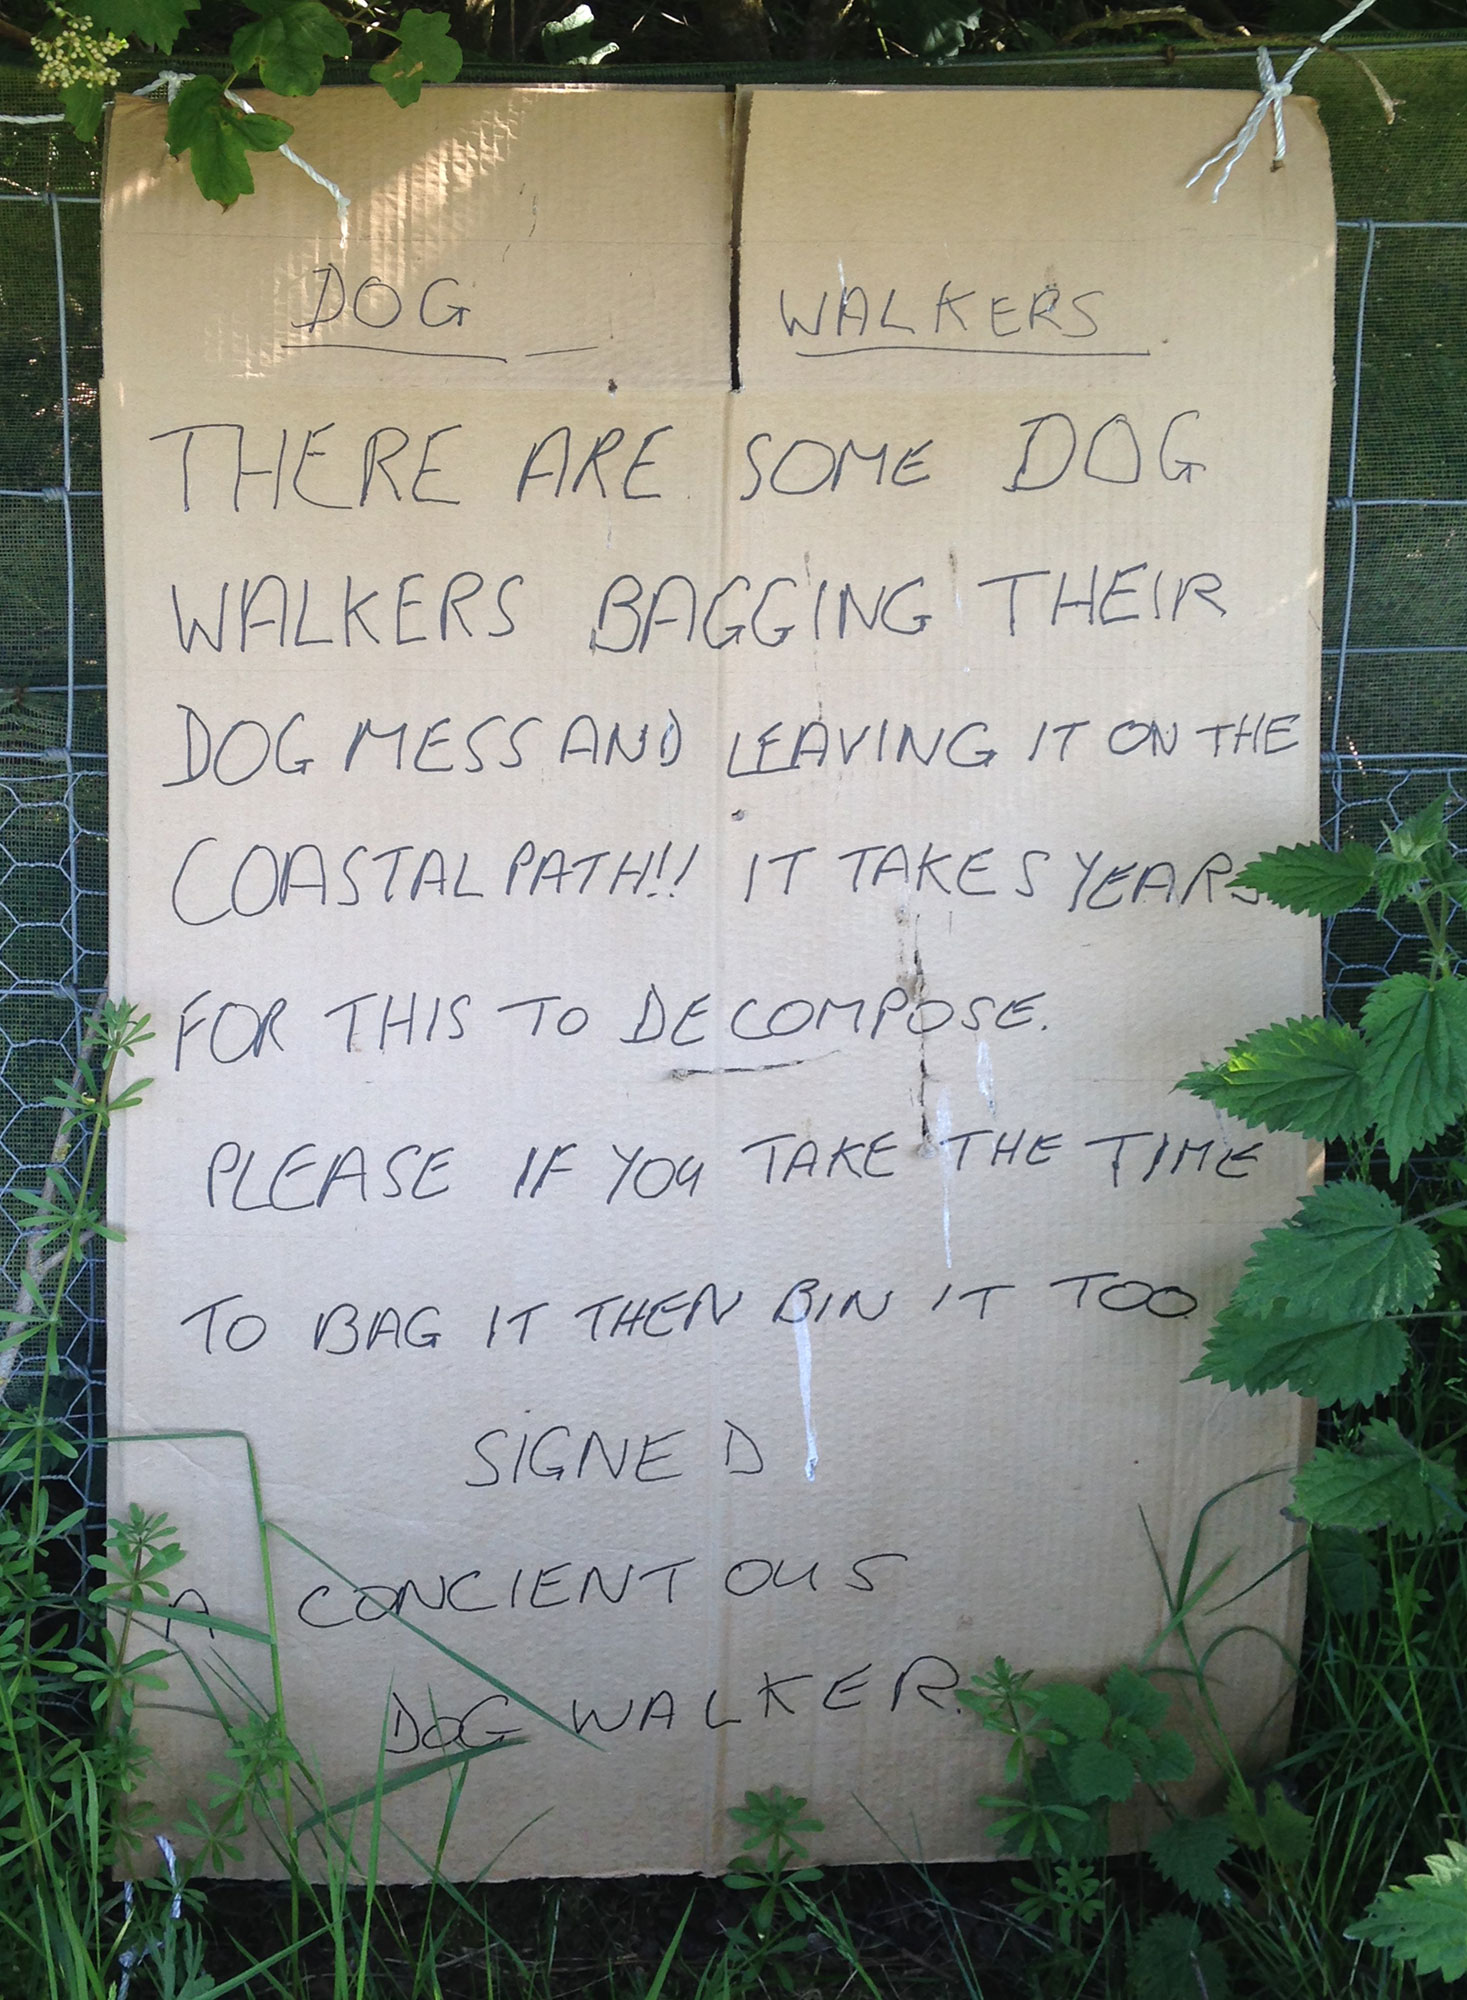 DOG WALKERS
THERE ARE SOME DOG
WALKERS BAGGING THEIR
DOG MESS AND LEAVING IT ON THE
COASTAL PATH!! IT TAKES YEARS
FOR THIS TO DECOMPOSE.
PLEASE IF YOU TAKE THE TIME
TO BAG IT THEN BIN IT TOO
SIGNED
A CONCIENTOUS
DOG WALKER.